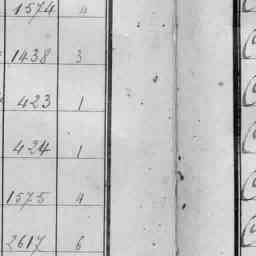 1574 4
1438 3
423 1
424 1
1575 4
2617 6